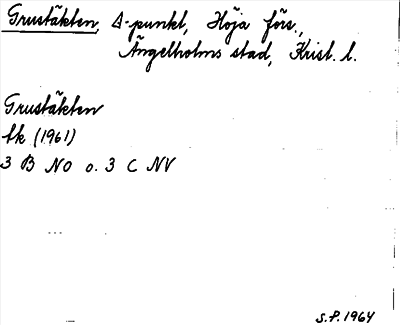 Grustäkten, Δ-punkt, Höja förs.,
Ängelholms stad, Krist. l.
Grustäkten
Ek (1961)
3 B NO o. 3 C NV
S.P. 1964